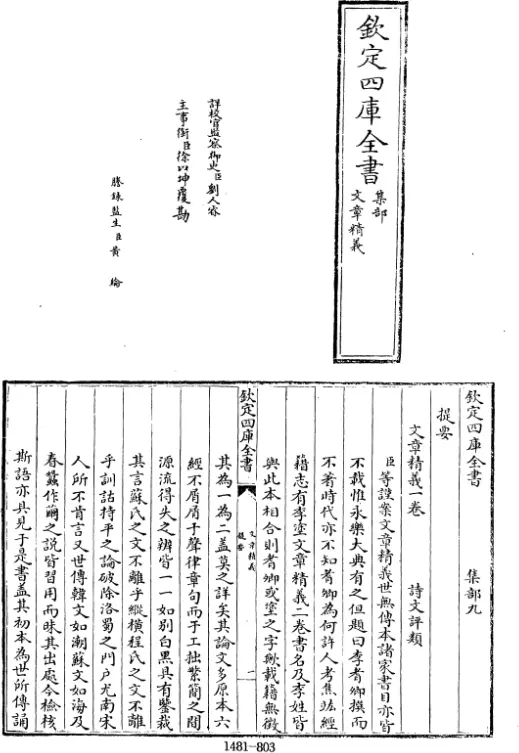 欽定四庫全書
集部
文章精義
詳校官監察御史臣劉人睿
主事銜臣徐以坤覆勘
謄錄監生臣黃綸
欽定四庫全書
集部九
提要
文章精義一卷
詩文評類
臣等謹案文章精義世無傳本諸家書目亦皆
不載惟永樂大典有之但題曰李耆卿撰而
不著時代亦不知耆卿為何許人考焦竑經
籍志有李塗文章精義二卷書名及李姓皆
與此本相合則耆卿或塗之字歟載籍無徵
欽定四庫全書
文章精義
提要
一
其為一為二蓋莫之詳矣其論文多原本六
經不屑屑于聲律章句而于工拙繁簡之間
源流得失之辨皆一一如別白黑具有鑒裁
其言蘇氏之文不離乎縱橫程氏之文不離
乎訓詁持平之論破除洛蜀之門戶尤南宋
人所不肯言又世傳韓文如潮蘇文如海及
春蠶作繭之說皆習用而昧其出處今檢核
斯語亦具見于是書蓋其初本為世所傳誦
1481-803